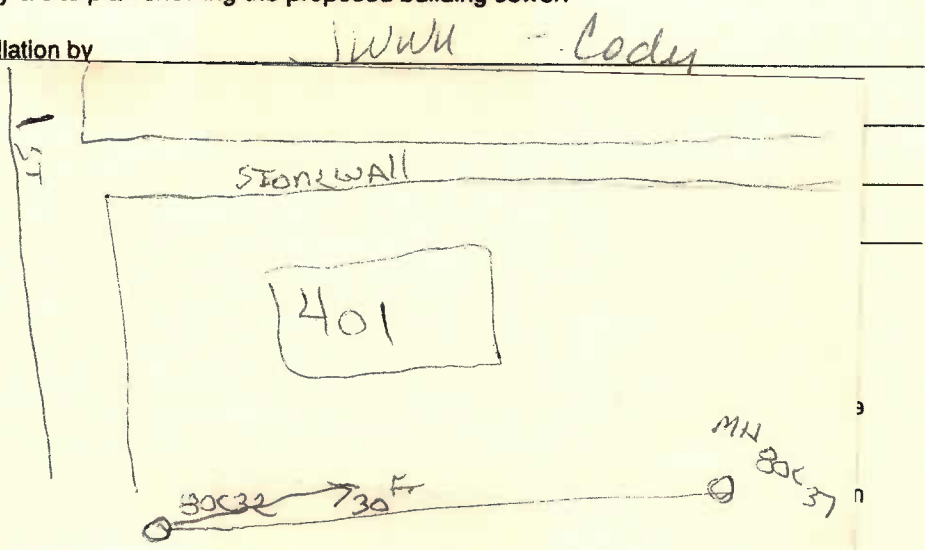 llation by Cody
1 ST
STONEWALL
401
MH 80C37
80C32 30 FT